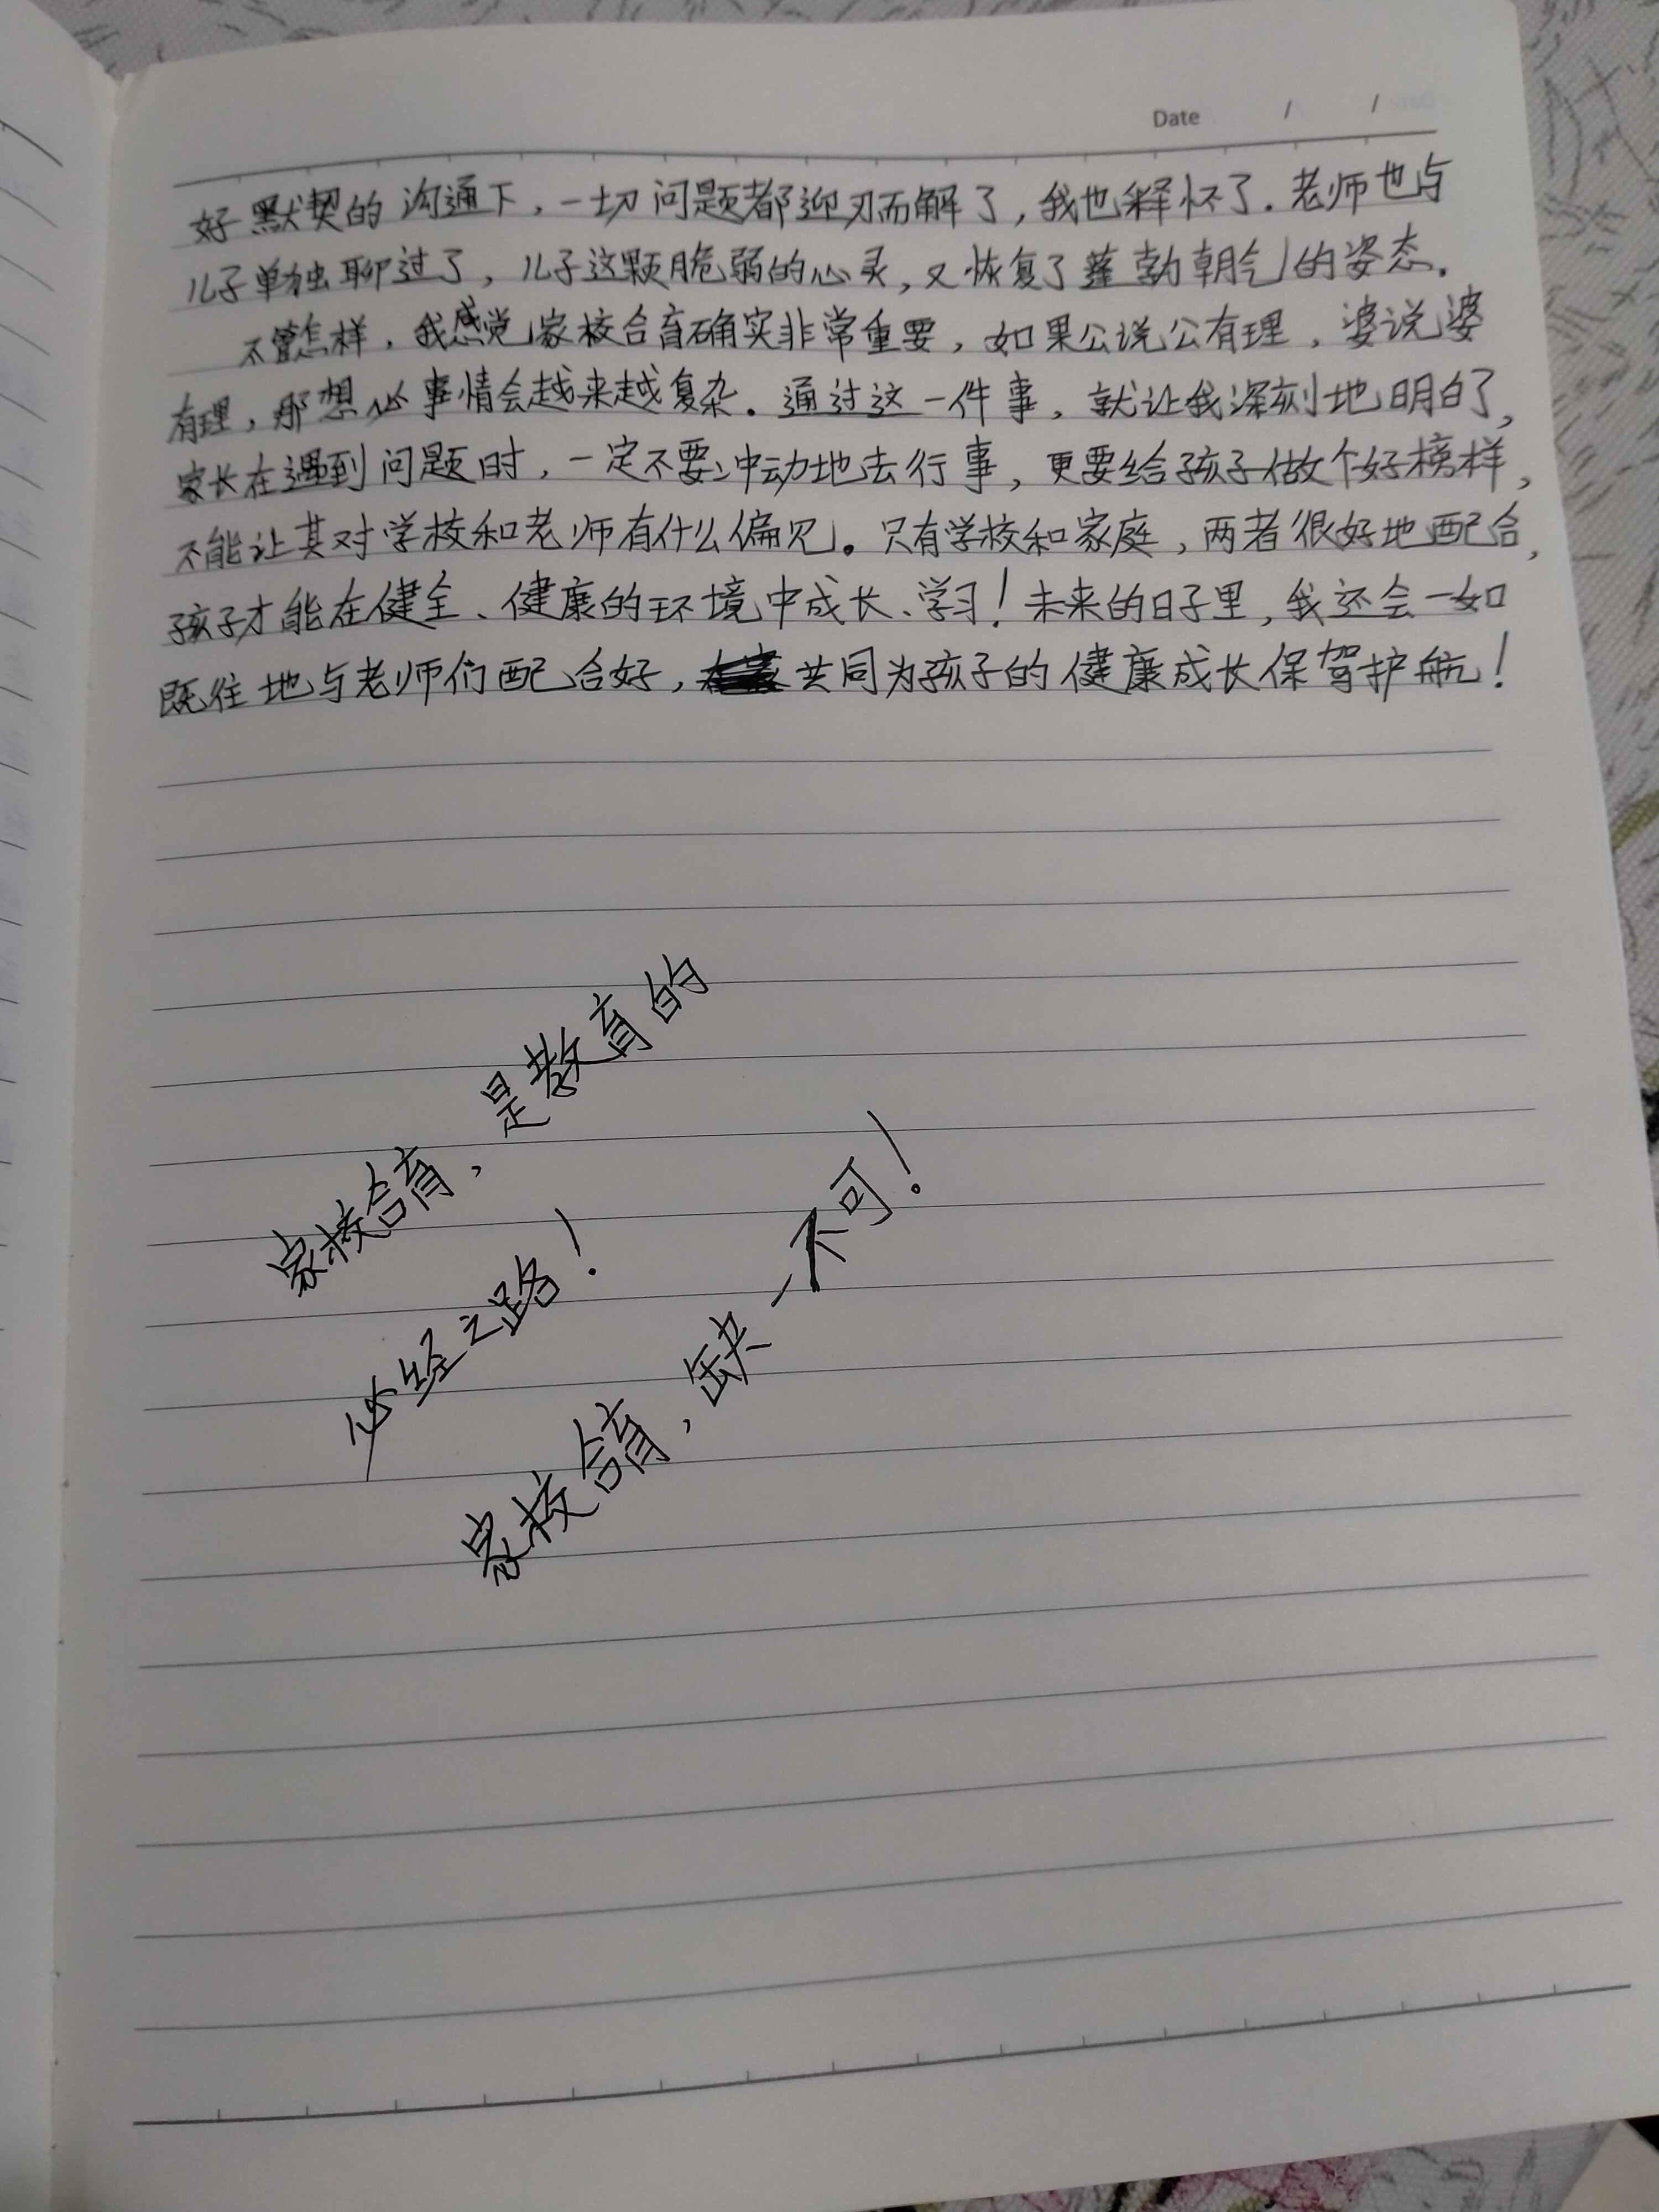 Date / /
好默契的沟通下，一切问题都迎刃而解了，我也释怀了.老师也与
儿子单独聊过了，儿子这颗脆弱的心灵，又恢复了蓬勃朝气的姿态.
不管怎样，我感觉家校合育确实非常重要，如果公说公有理，婆说婆
有理，那想必事情会越来越复杂。通过这一件事，就让我深刻地明白了，
家长在遇到问题时，一定不要冲动地去行事，更要给孩子做个好榜样，
不能让其对学校和老师有什么偏见。只有学校和家庭，两者很好地配合，
孩子才能在健全、健康的环境中成长、学习！未来的日子里，我还会一如
既往地与老师们配合好，共同为孩子的健康成长保驾护航！
家校合育，是教育的
必经之路！
家校合育，缺一不可！